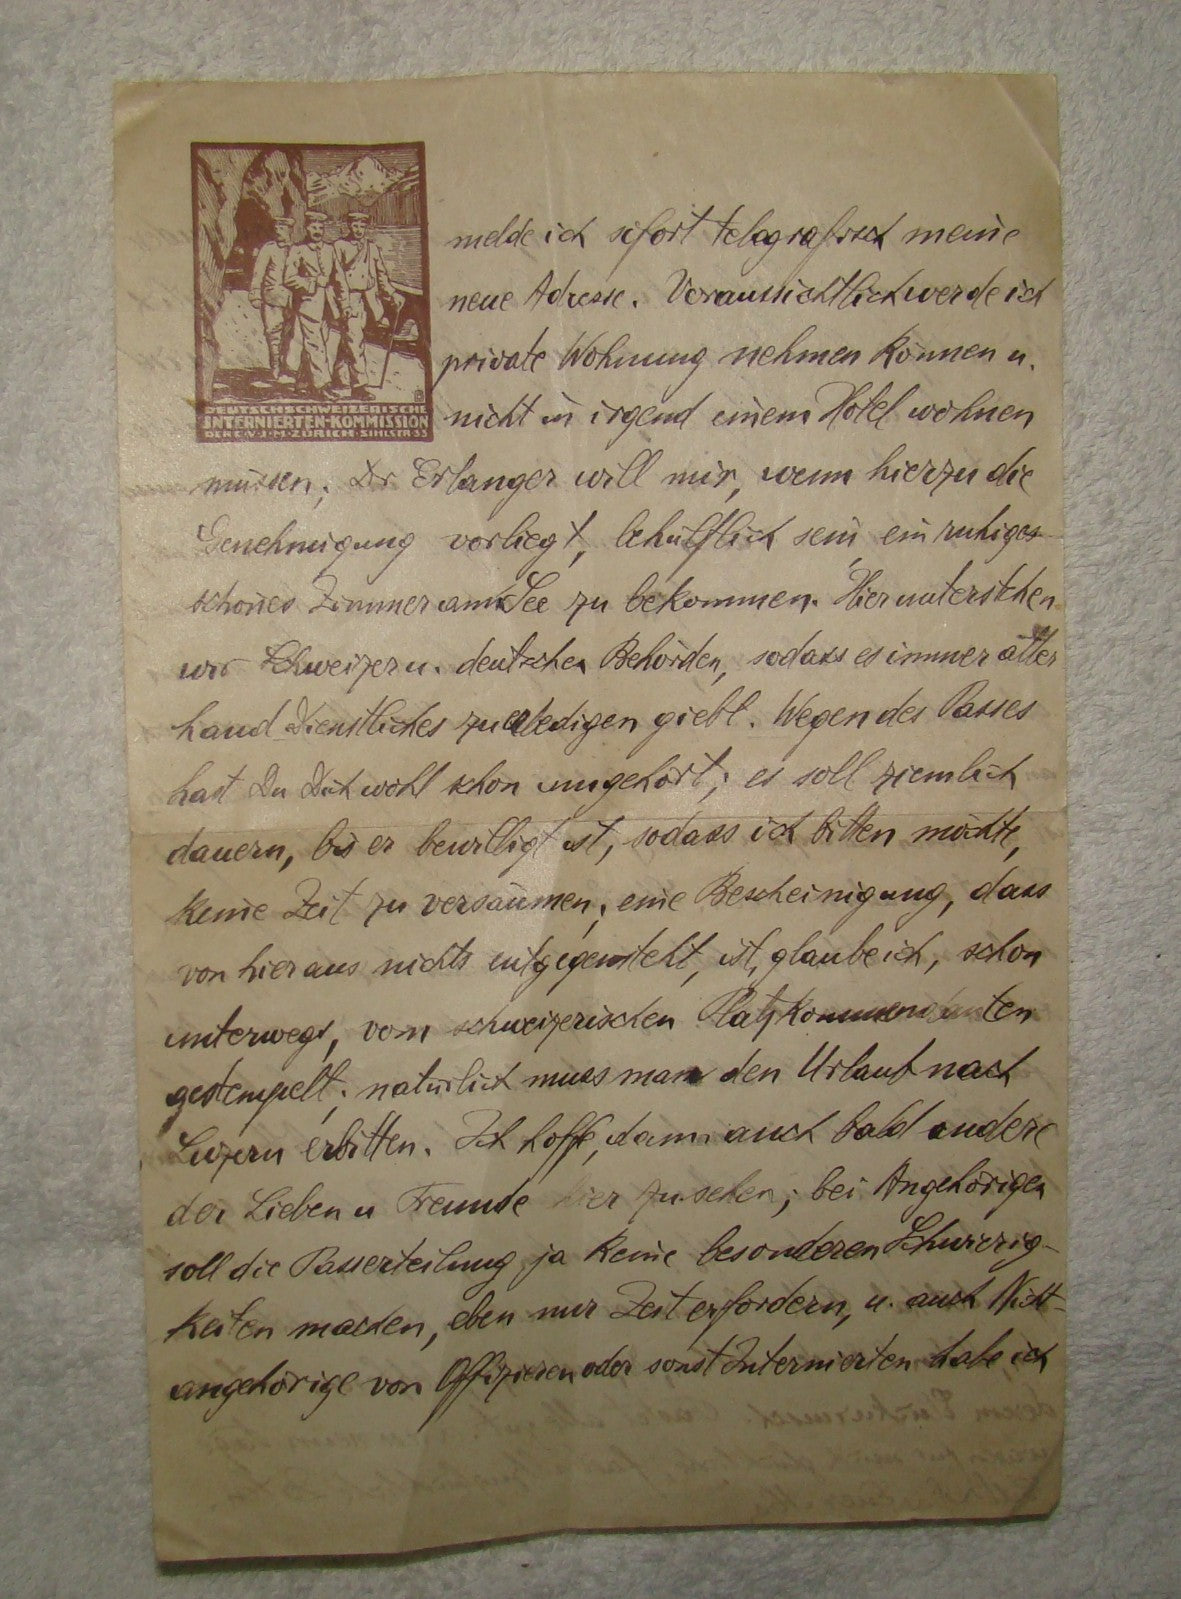 DEUTSCHSCHWEIZERISCHE
INTERNIERTEN-KOMMISSION
DER C.V.J.M. ZÜRICH-SIHLSTR 33
melde ich sofort telegrafisch meine
neue Adresse. Voraussichtlich werde ich
private Wohnung nehmen können u.
nicht in irgend einem Hotel wohnen
müssen; Dr Erlanger will mir, wenn hierzu die
Genehmigung vorliegt, behülflich sein, ein ruhiges
schönes Zimmer am See zu bekommen. Hier unterstehen
wir Schweizer u. deutschen Behörden, sodass es immer aller
hand Dienstliches zu erledigen giebt. Wegen des Passes
hast Du Dich wohl schon umgehört; es soll ziemlich
dauern, bis er bewilligt ist, sodass ich bitten möchte,
keine Zeit zu versäumen; eine Bescheinigung, dass
von hier aus nichts entgegensteht, ist, glaube ich, schon
unterwegs, vom schweizerischen Platzkommendanten
gestempelt; natürlich muss man den Urlaub nach
Luzern erbitten. Ich hoffe, dann auch bald andere
der Lieben u Freunde hier zu sehen; bei Angehörigen
soll die Passerteilung ja keine besonderen Schwierig-
keiten machen, eben nur Zeit erfordern, u. auch Nicht-
angehörige von Offizieren oder sonst Internierten habe ich